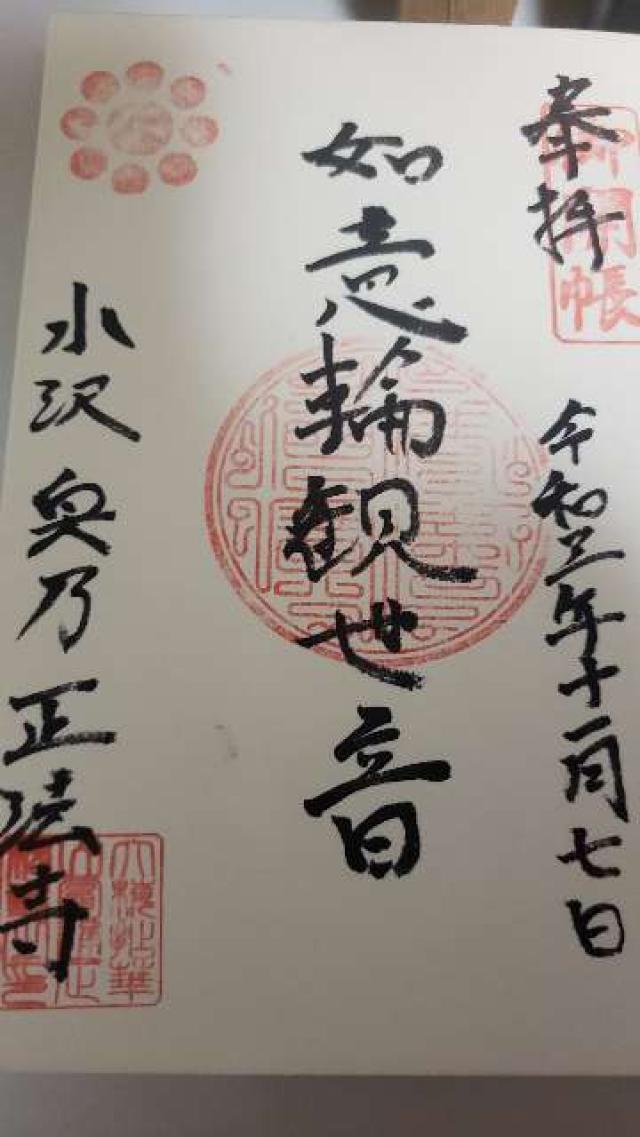 奉拝
御開帳
令和三年十一月七日
如意輪観世音
水沢 奥乃 正法寺